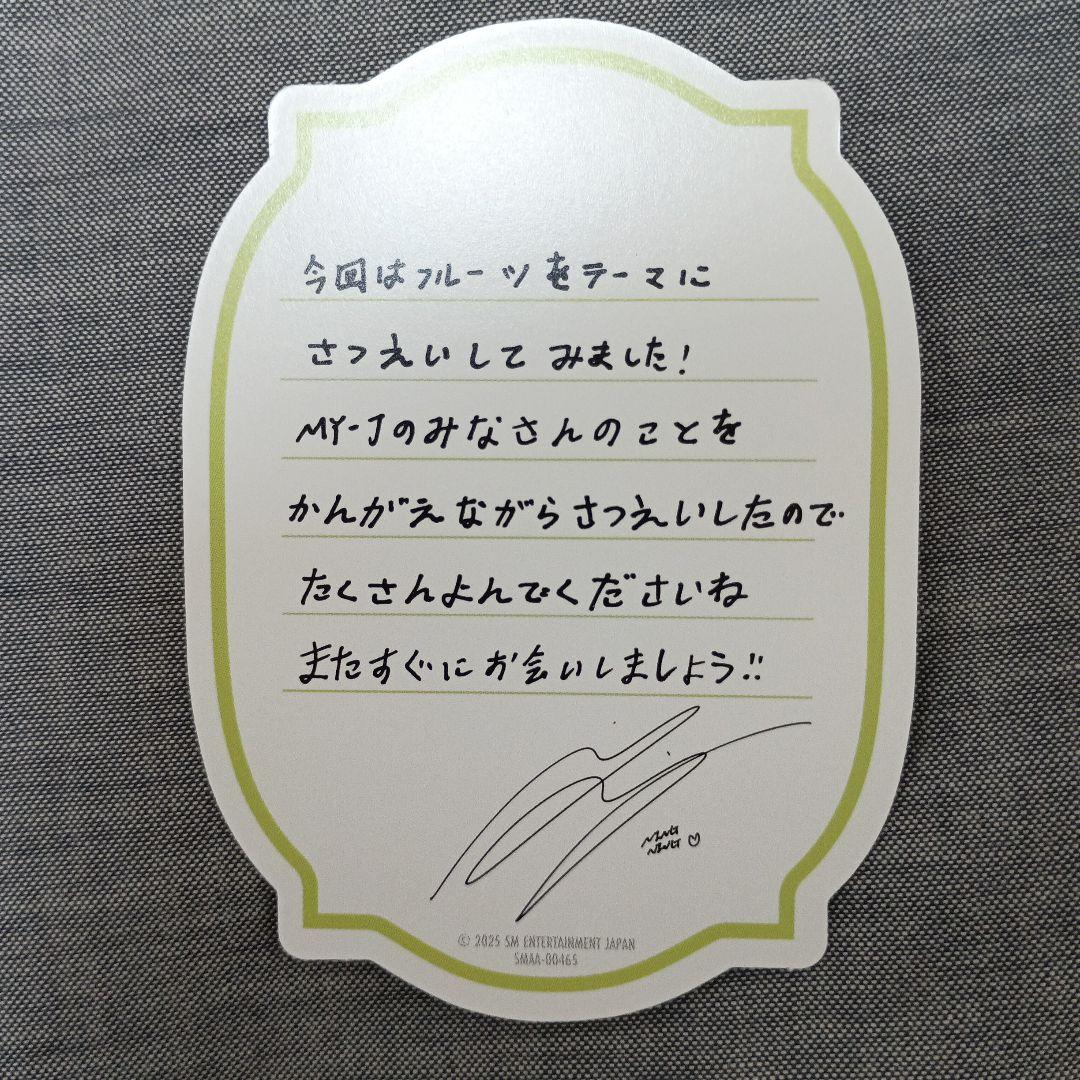 今回はフルーツをテーマに
さつえいしてみました!
MY-Jのみなさんのことを
かんがえながらさつえいしたので
たくさんよんでくださいね
またすぐにお会いしましょう!!
NING
NING ♡
© 2025 SM ENTERTAINMENT JAPAN
SMAA-00465